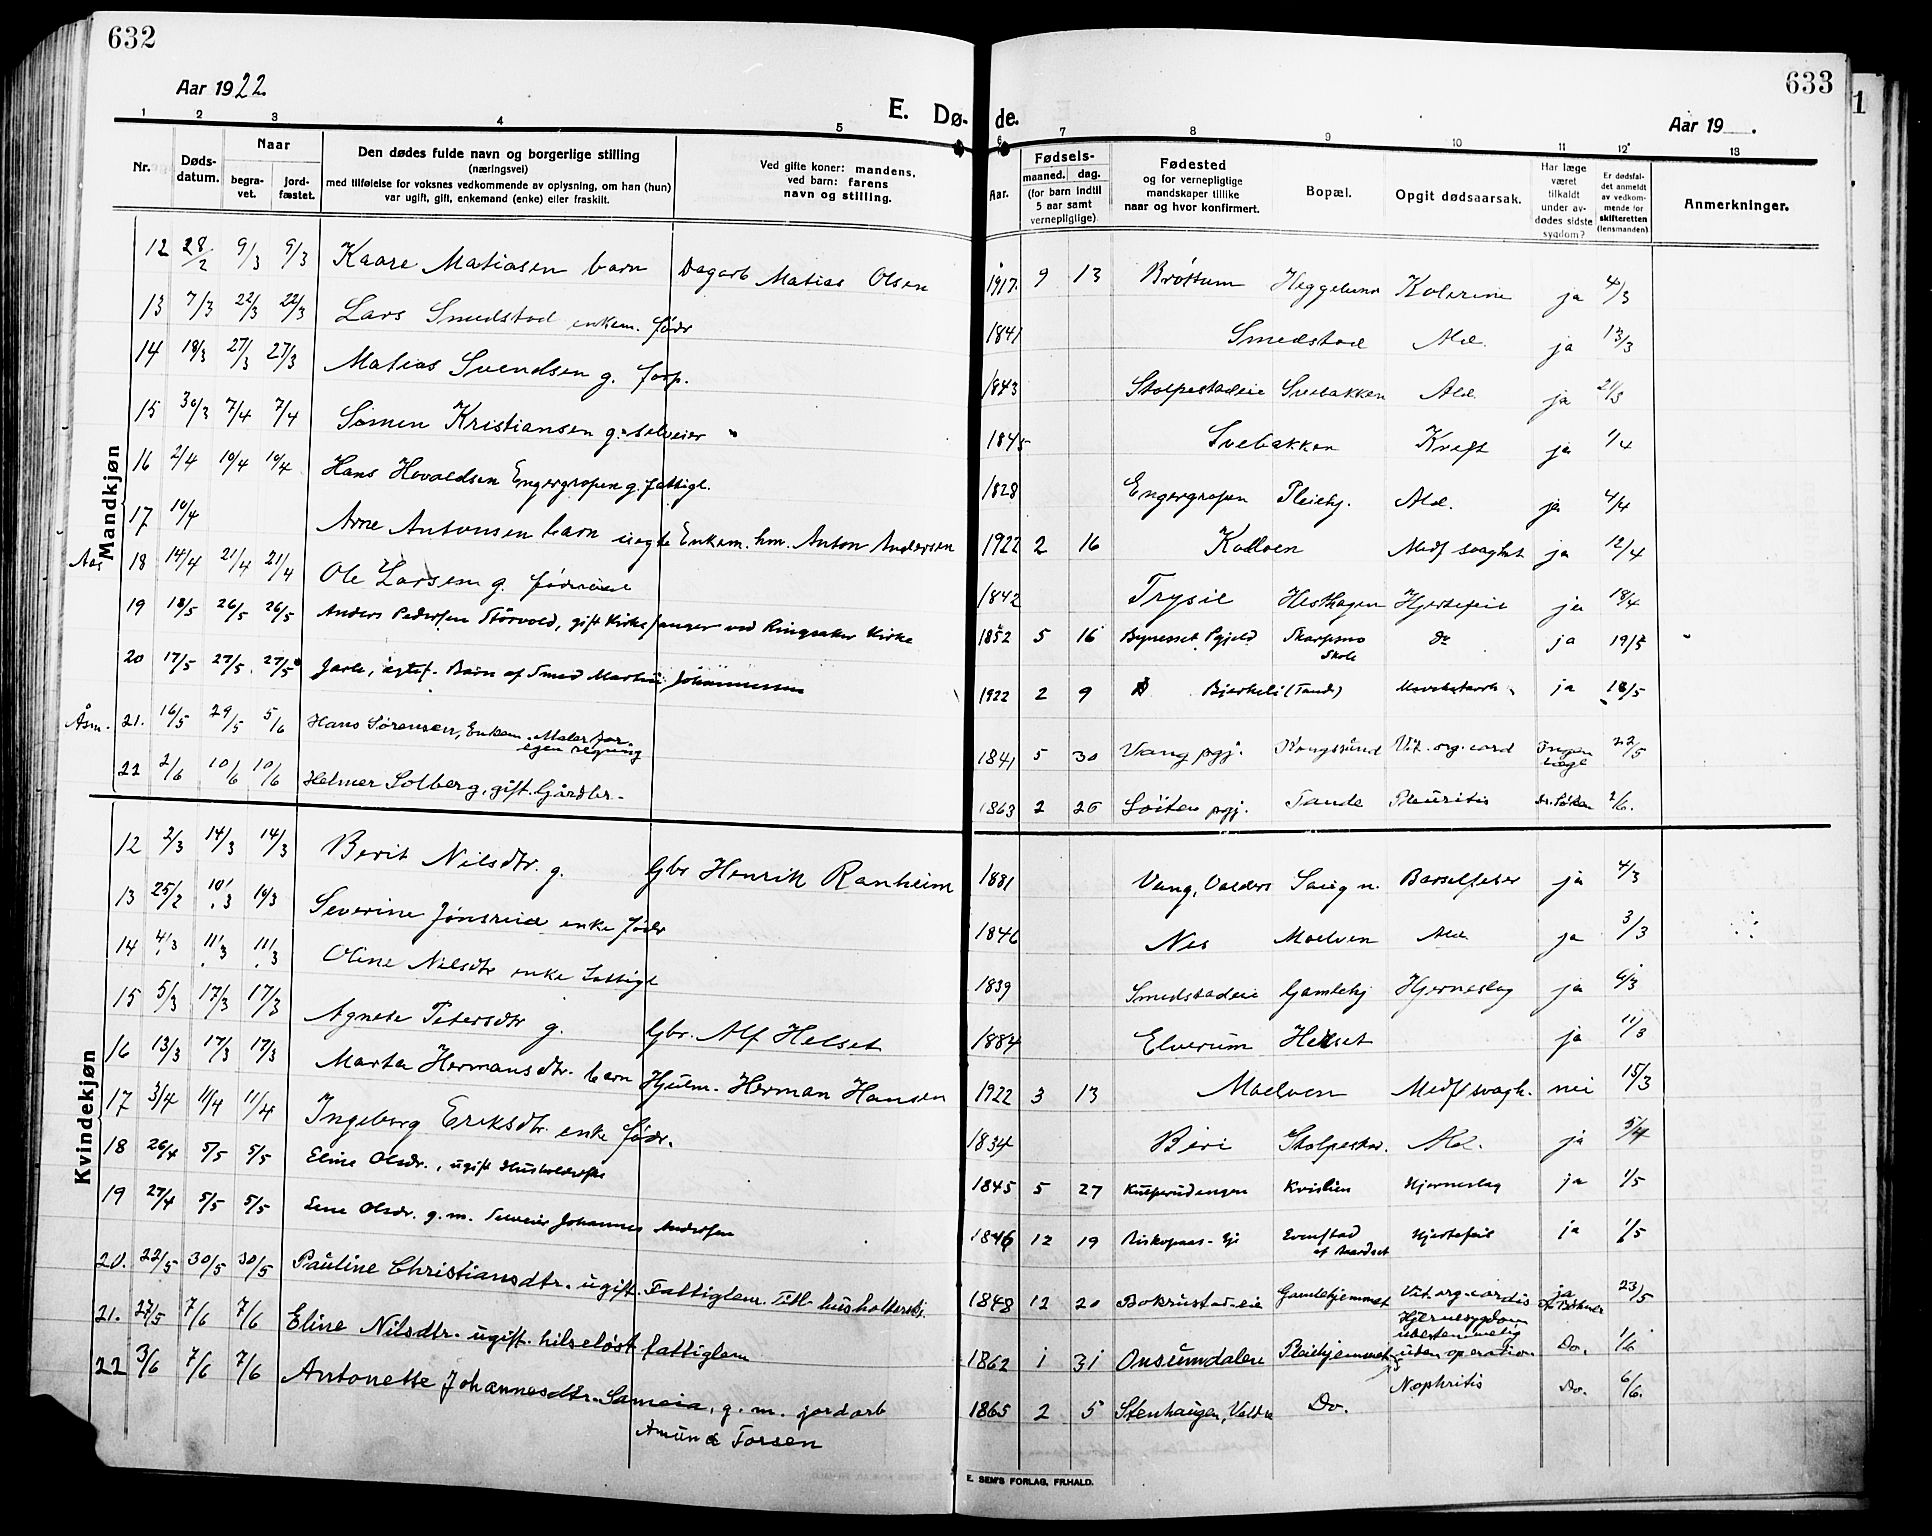 632
Aar 1922.
E. Dø-
1 2 3 4 5
Nr. Døds-datum. Naar begra-vet. jord-fæstet. Den dødes fulde navn og borgerlige stilling (næringsvei) med tilføielse for voksnes vedkommende av oplysning, om han (hun) var ugift, gift, enkemand (enke) eller fraskilt. Ved gifte koner: mandens, ved barn: farens navn og stilling.
Mandkjøn
12 28/2 9/3 9/3 Kaare Matiasen barn Dagarb Matias Olsen
13 7/3 22/3 22/3 Lars Smedstad enkem. födr
14 18/3 27/3 27/3 Matias Svendsen g. forp.
15 30/3 7/4 7/4 Simen Kristiansen g. selveier "
16 2/4 10/4 10/4 Hans Hovaldsen Engergropen g. fattigl.
17 10/4 Arne Antonsen barn uegte Enkem. hm. Anton Andersen
18 14/4 21/4 21/4 Ole Larsen g.
19 18/5 26/5 26/5 Anders Pedersen Störvold, gift Kirkesanger ved Ringsaker Kirke
20 17/5 27/5. 27/5 Jarle, ægtef. Barn af Smed Martin Johannessen
Åsm. 21. 16/5 29/5 5/6 Hans Sørensen, Enkem. Maler for
egen regning
22 2/6 10/6 10/6 Helmer Solberg, gift. Gårdbr.
Kvindekjøn
12 2/3 14/3 14/3 Berit Nilsdtr. g. Gbr Henrik Ranheim
13 25/2 10/3 10/3 Severine enke födr
14 4/3 11/3 11/3 Oline Nilsdtr enke fattigl
15 5/3 17/3 17/3 Agnese Petersdtr g. Gbr. Alf Helset
16 13/3 17/3 17/3 Marta Hermansdtr. barn Hjulm. Herman Hansen
17 3/4 11/4 11/4 Ingeborg Eriksdtr. enke födr.
18 26/4 5/5 5/5 Eline Olsdr., ugift
19 27/4 5/5 5/5 Lene Olsdr. g.m. Selveier Johannes Andersen
20. 22/5 30/5 30/5 Pauline Christiansdtr. ugift. Fattiglem. Tidl. husholderskj.
21. 27/5 7/6 7/6 Eline Nilsdtr. ugift. helseløst fattiglem
22 3/6 7/6 7/6 Antonette Johannesdtr. g. m. jordarb
Amund Torsen
633
1
Aar 19 .
de.
6 7 8 9 10 11 12 13
Aar. Fødsels- maaned. dag. (for barn indtil 5 aar samt vernepligtige) Fødested og for vernepligtige mandskaper tillike naar og hvor konfirmert. Bopæl. Opgit dødsaarsak. Har læge været tilkaldt under av-dødes sidste sygdom? Er dødsfal-det anmeldt av vedkom-mende for skifteretten (lensmanden) Anmerkninger.
1917. 9 13 Brøttum Heggelund Kolerine ja 4/3
1841 Smedstad Ald. ja 13/3
1843 Stolpestadeie Svebakken Ald. ja 21/3
1845 Svebakken Kreft ja 1/4
1828 Engergropen Pleiehj. Ald. ja 4/4
1922 2 16 Medf svaght ja 12/4
1842 Trysil Hesthagen Hjertefeil ja 18/4
1852 5 16 Bynesset Pgjeld Skarpsno
Skole do ja 19/5
1922 2 9 Bjerkeli (Tande) ja 18/5
1841 5 30 Vang pgj. Kongssund Vit. org. cord Ingen
læge 22/5
1863 2 26 Löiten pgj. Tande Pleuritis 2/6.
1881 Vang, Valdres n. Barselfeber ja 4/3
1846 Nes Moelven Ald. ja 3/3
1839 Smedstadeie Gamlehj Hjerneslag ja 6/3
1884 Elverum Helset ja 11/3
1922 3 13 Moelven Medf svagh. nei 15/3
1834 Biri Stolpestad. Ald. ja 5/4
1845 5 27 Kvislien Hjerneslag ja 1/5
1846 12 19 Hjertefeil ja 1/5
1848 12 20 Bokrustadeie Gamlehjemmet Vit. org. cordis ja 23/5
1862 1 31 Onsumdalen Pleiehjemmet Hjernesygdom
ubestemmelig
uden operation Do. 1/6
1865 2 5 Stenhaugen, Do. Nephritis Do. 6/6.
E. SEM'S FORLAG, FR.HALD.